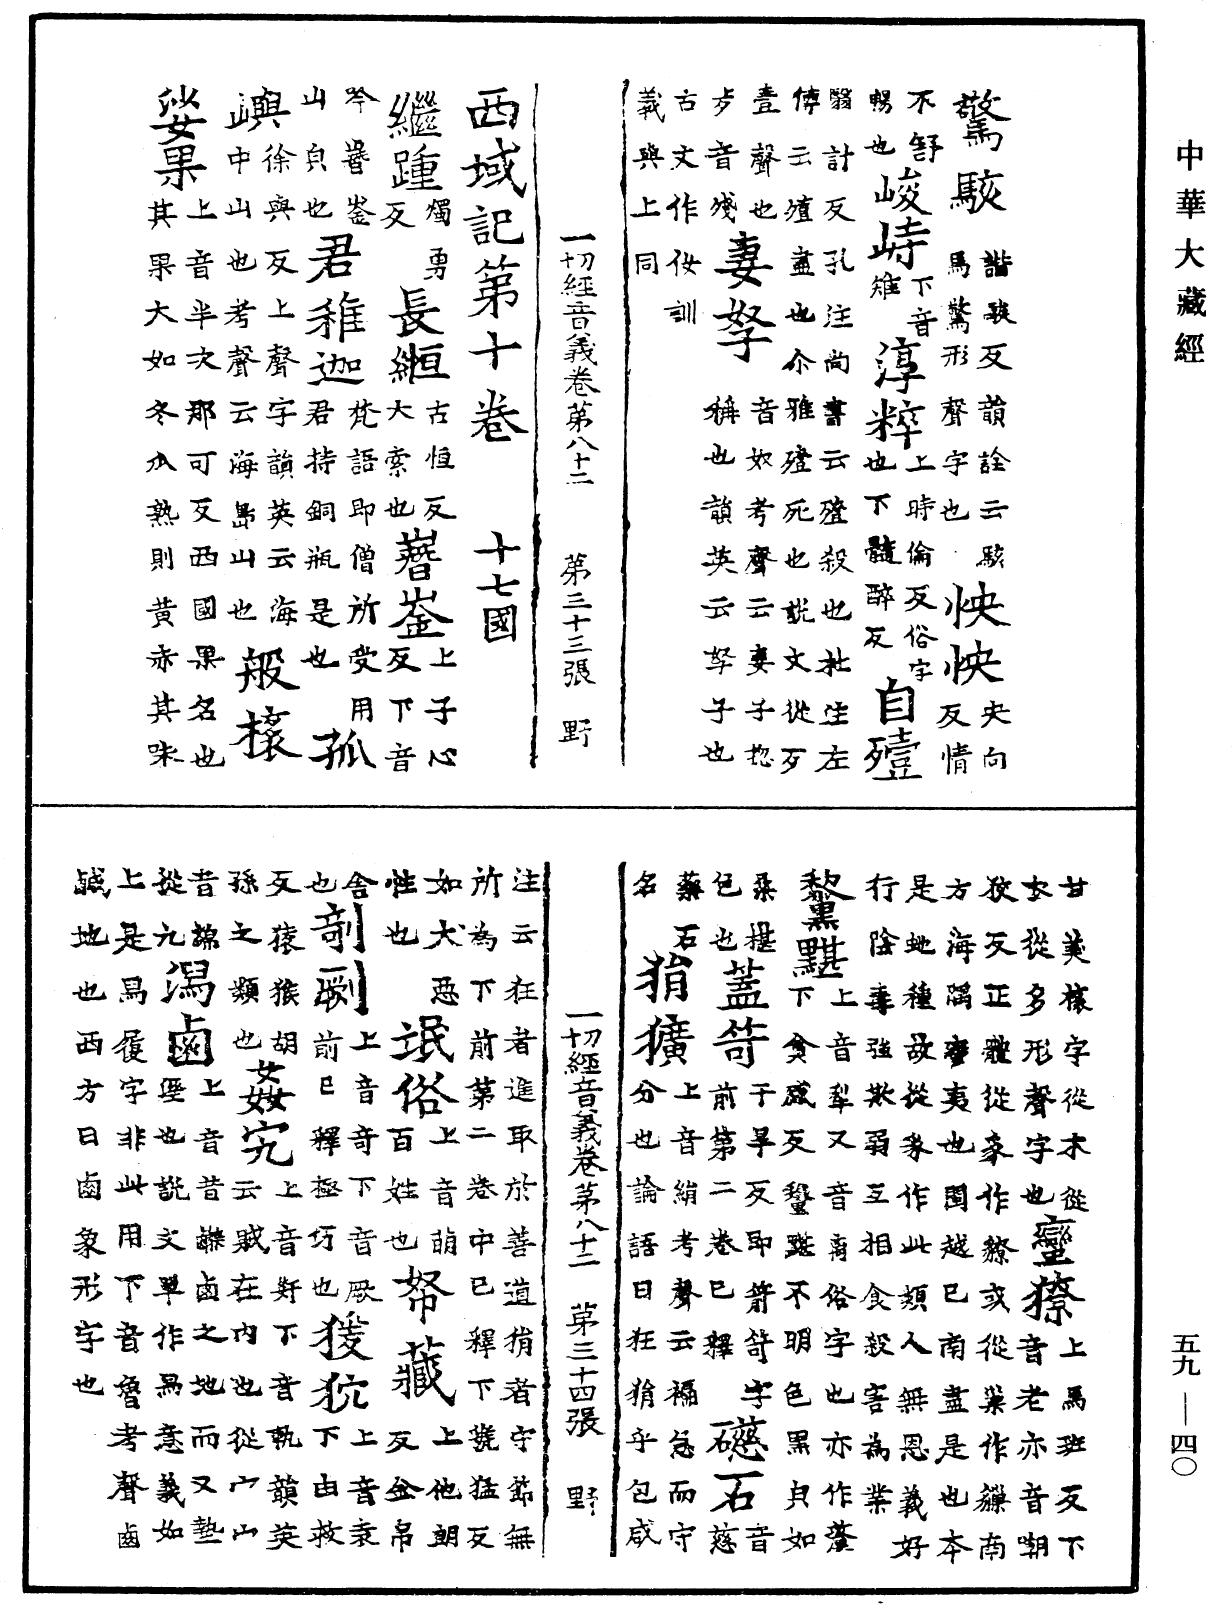 中華大藏經
驚駭諧駭反韻詮云駭馬驚形聲字也怏怏央向反情
不舒暢也峻峙下音雉淳粹上時倫反俗字也下髓醉反自殪
翳計反孔注尚書云殪殺也杜注左傳云殪盡也尒雅殪死也說文從歹
壹聲也歹音殘妻孥音奴考聲云妻子揔稱也韻英云孥子也
古文作㚢訓義與上同
一切經音義卷第八十二 第三十三張 野
西域記第十卷 十七國
繼踵燭勇反長緪古恒反大索也嶜崟上子心反下音
吟嶜崟山皃也君稚迦梵語即僧所受用君持銅瓶是也孤
嶼徐與反上聲字韻英云海中山也考聲云海島山也般橠
娑果上音半次那可反西國果名也其果大如冬瓜熟則黃赤其味
甘美橠字從木從衣從多形聲字也蠻獠上馬班反下音老亦音嘲
狡反正體從豕作䝤或從巢作𤡔南方海隅蠻夷也閩越已南盡是也本
是虵種故從豸作此類人無恩義好行陰毒強欺弱互相食殺害為業
黧黮上音犁又音离俗字也亦作𪐇下貪感反黧黮不明色黑皃如
桒椹色也蓋笴干旱反即箭笴字前第二卷已釋礠石音慈
藥石名狷獷上音絹考聲云褊急而守分也論語曰狂狷乎包咸
一切經音義卷第八十二 第三十四張 野
注云狂者進取於善道狷者守節無所為下前第二卷中已釋下虢猛反
如犬惡性也氓俗上音萌百姓也帑藏上他朗反金帛
舍也剞劂上音奇下音厥前已釋極巧也猨狖上音袁下由救
反猿猴胡孫之類也姦宄上音奸下音軌韻英云賊在內也從宀山
音諒從九潟鹵上音昔鹹鹵之地而又墊堙也說文單作舄意義如
上是舄履字非此用下音魯考聲鹵鹹地也西方曰鹵象形字也
五九—四〇